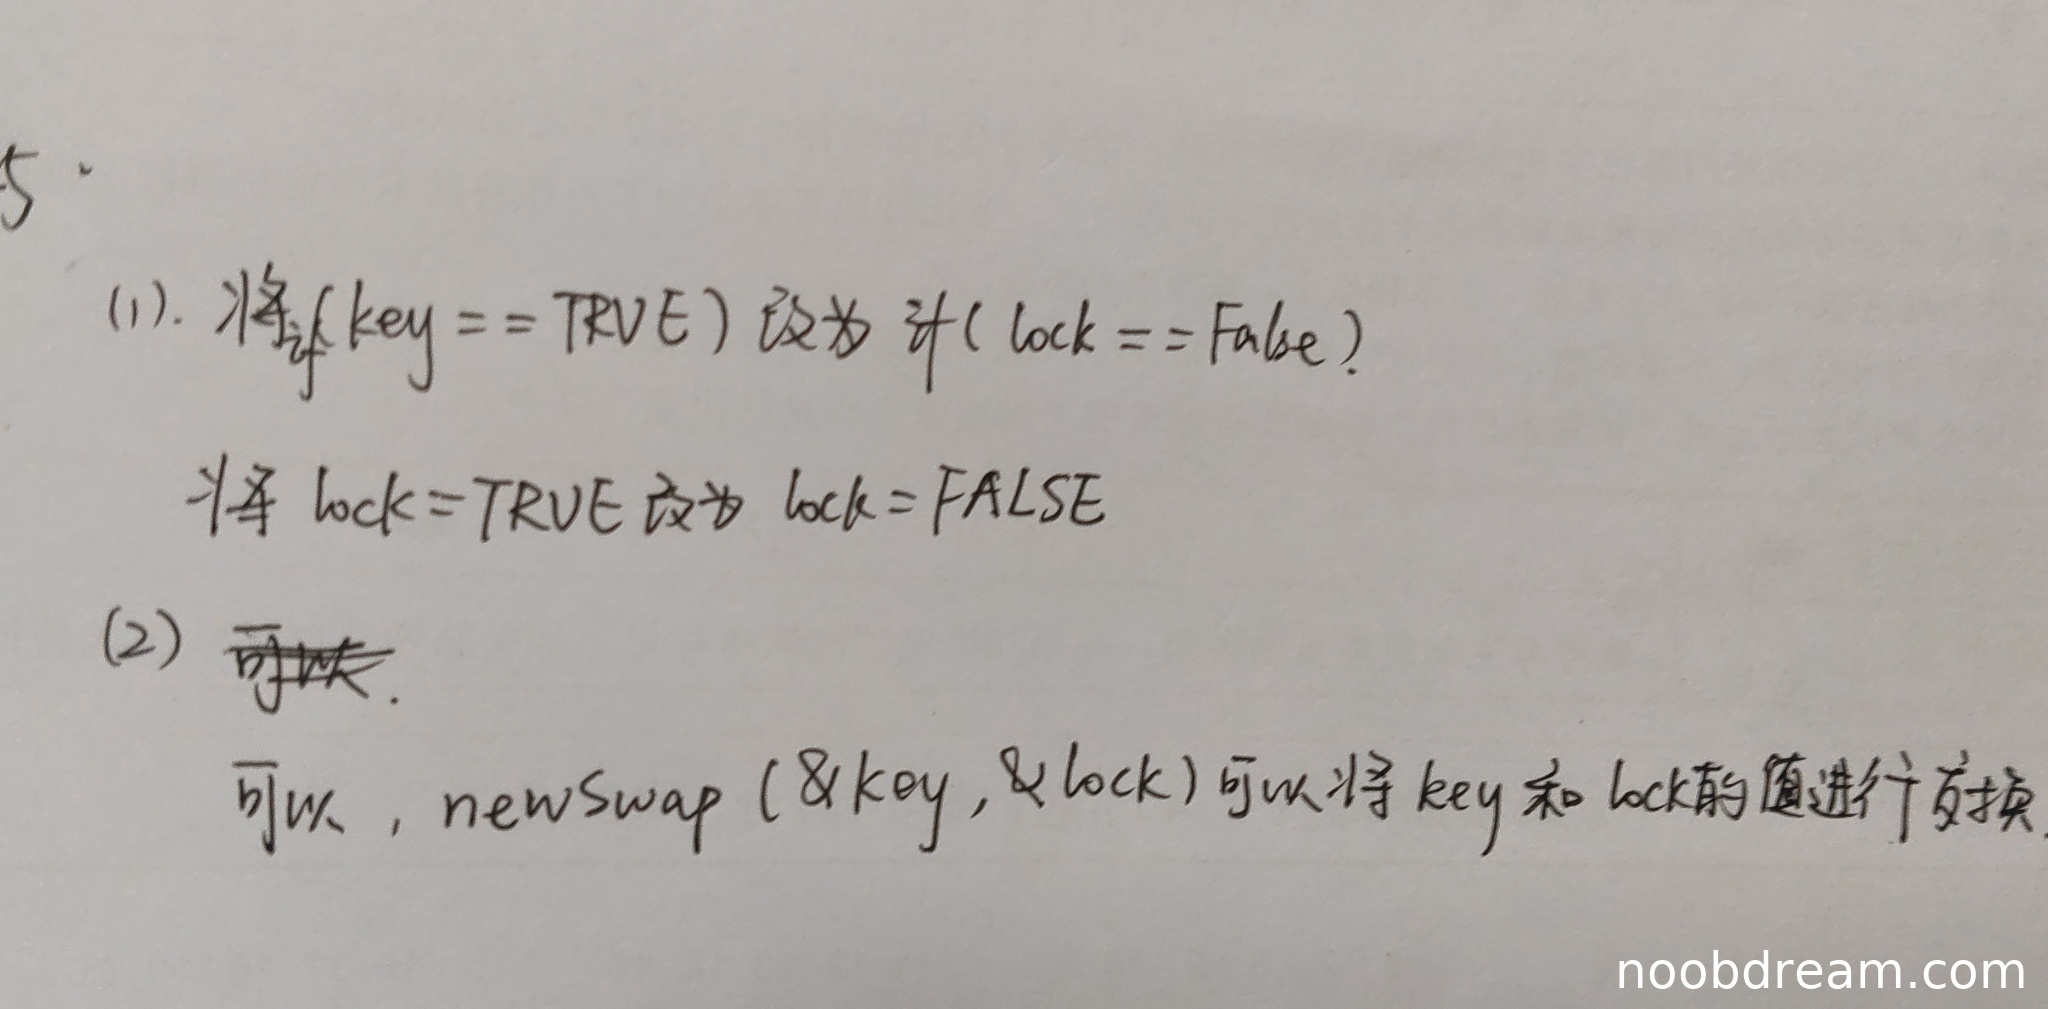 5.
(1). 将if(key==TRUE)改为 if(lock==False).
将 lock=TRUE改为 lock=FALSE
(2) 可以.
可以, newSwap(&key,&lock)可以将key和lock的值进行交换.
noobdream.com